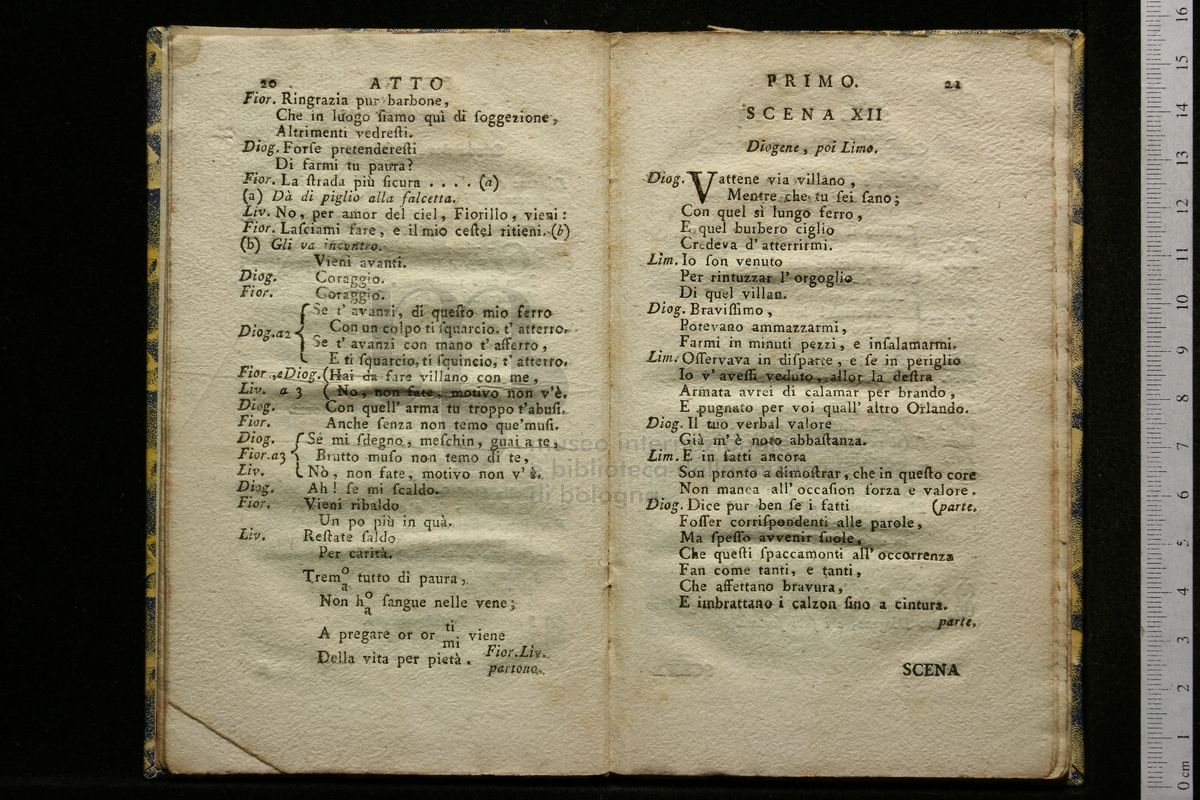 20 ATTO
Fior. Ringrazia pur barbone,
Che in luogo ſiamo quì di ſoggezione,
Altrimenti vedreſti.
Diog. Forſe pretendereſti
Di farmi tu paura?
Fior. La ſtrada più ſicura . . . . (a)
(a) Dà di piglio alla falcetta.
Liv. No, per amor del ciel, Fiorillo, vieni:
Fior. Laſciami fare, e il mio ceſtel ritieni. (b)
(b) Gli va incontro.
Vieni avanti.
Diog. Coraggio.
Fior. Coraggio.
Se t' avanzi, di queſto mio ferro
Diog.a2 Con un colpo ti ſquarcio, t' atterro.
Se t' avanzi con mano t' afferro,
E ti ſquarcio, ti ſquincio, t' atterro.
Fior., e Diog. (Hai da fare villano con me,
Liv. a 3 ( No, non fate, motivo non v'è.
Diog. Con quell' arma tu troppo t'abuſi.
Fior. Anche ſenza non temo que'muſi.
Diog. Se mi ſdegno, meſchin, guai a te,
Fior.a3 Brutto muſo non temo di te,
Liv. Nò, non fate, motivo non v' è.
Diog. Ah! ſe mi ſcaldo.
Fior. Vieni ribaldo
Un po più in quà.
Liv. Reſtate ſaldo
Per carità.
Trem o/a tutto di paura,
Non h o/a ſangue nelle vene;
A pregare or or ti/mi viene
Della vita per pietà. Fior. Liv.
partono.
PRIMO. 21
SCENA XII
Diogene, poi Limo.
Diog. Vattene via villano,
Mentre che tu ſei ſano;
Con quel sì lungo ferro,
E quel burbero ciglio
Credeva d' atterrirmi.
Lim. Io ſon venuto
Per rintuzzar l' orgoglio
Di quel villan.
Diog. Braviſſimo,
Potevano ammazzarmi,
Farmi in minuti pezzi, e inſalamarmi.
Lim. Oſſervava in diſparte, e ſe in periglio
Io v' aveſſi veduto, allor la deſtra
Armata avrei di calamar per brando,
E pugnato per voi quall' altro Orlando.
Diog. Il tuo verbal valore
Già m' è noto abbaſtanza.
Lim. E in fatti ancora
Son pronto a dimoſtrar, che in queſto core
Non manca all' occaſion forza e valore.
Diog. Dice pur ben ſe i fatti (parte.
Foſſer corriſpondenti alle parole,
Ma ſpeſſo avvenir ſuole,
Che queſti ſpaccamonti all' occorrenza
Fan come tanti, e tanti,
Che affettano bravura,
E imbrattano i calzon ſino a cintura.
parte.
SCENA
museo internazionale
biblioteca
di bologna
0 cm 1 2 3 4 5 6 7 8 9 10 11 12 13 14 15 16